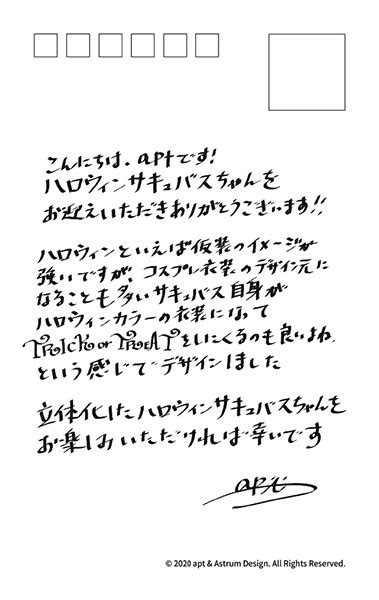 こんにちは、aptです!
ハロウィンサキュバスちゃんを
お迎えいただきありがとうございます!!
ハロウィンといえば仮装のイメージが
強いですが、コスプレ衣装のデザイン元に
なることも多いサキュバス自身が
ハロウィンカラーの衣装になって
TRICK or TREATをしにくるのも良いよね
という感じでデザインしました
立体化したハロウィンサキュバスちゃんを
お楽しみいただければ幸いです
apt
© 2020 apt & Astrum Design. All Rights Reserved.